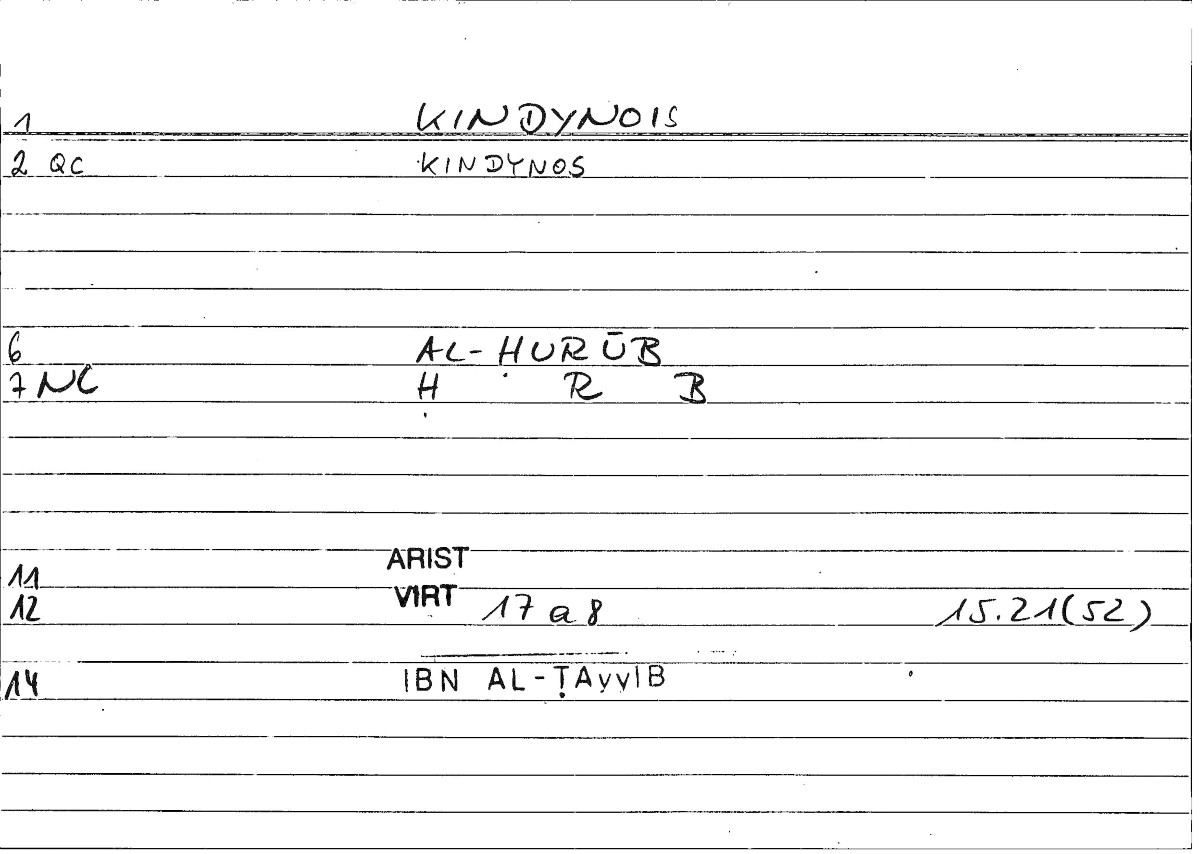 1 KINDYNOIS
2 QC KINDYNOS
6 AL-ḤURŪB
7 NC Ḥ R B
11 ARIST
12 VIRT 17 a 8 15.21(52)
14 IBN AL-ṬAyyIB